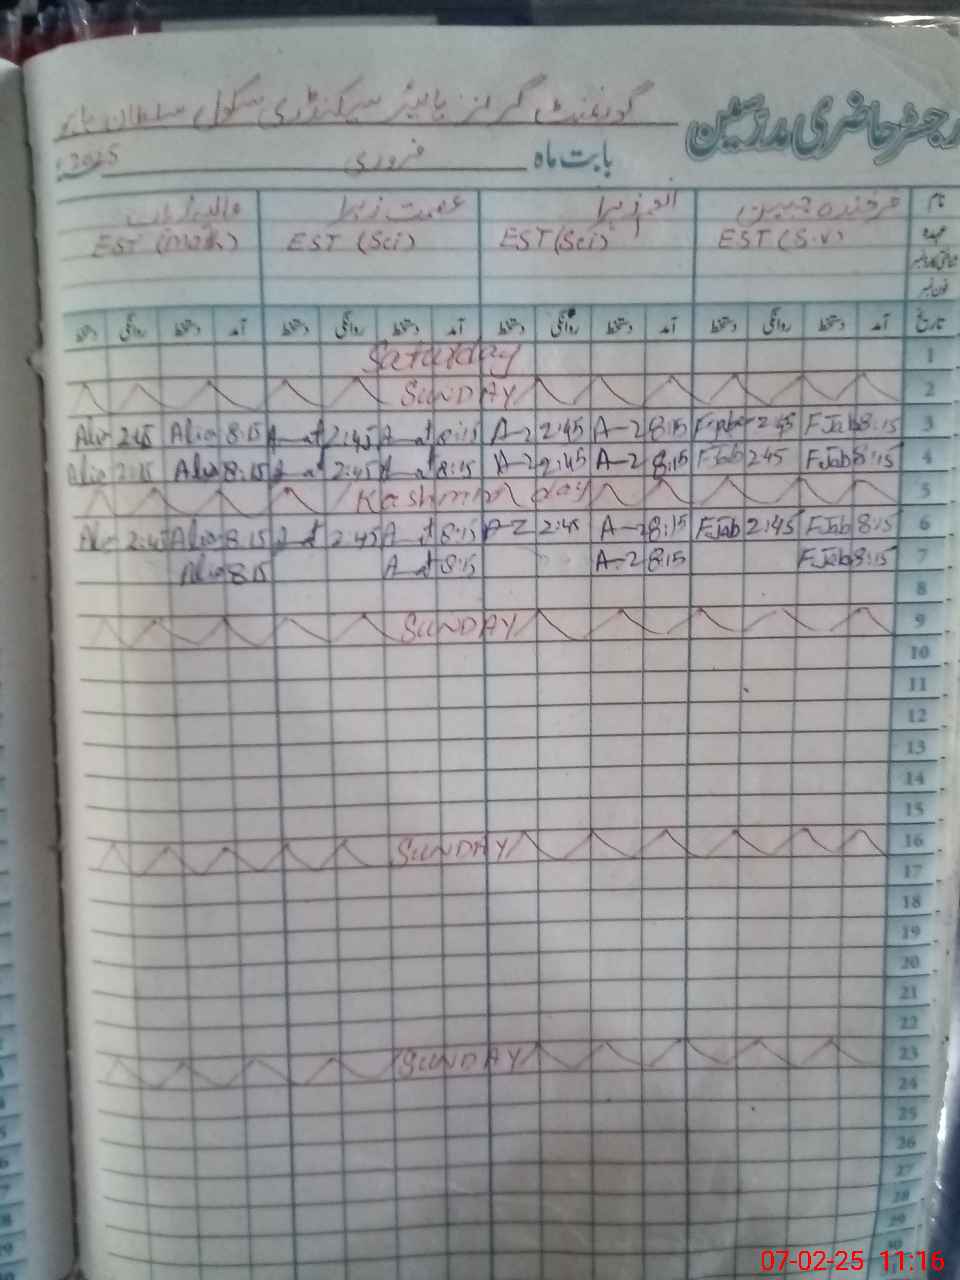 رجسٹر حاضری مدرسین گورنمنٹ گرلز ہائیر سیکنڈری سکول سلطان
بابت ماہ فروری 2025ء
نام فرخندہ جبین زہرا عصمت زہرا عالیہ
عہدہ EST (S.V) EST (Sci) EST (Sci) EST (Math)
شناختی کارڈ نمبر
فون نمبر
تاریخ آمد دستخط روانگی دستخط آمد دستخط روانگی دستخط آمد دستخط روانگی دستخط آمد دستخط روانگی دستخط
Saturday 1
SUNDAY 2
2:45 Alia 8:15 2:45 8:15 A-2 2:45 A-2 8:15 2:45 F.Jab 8:15 3
Alia 2:45 Alia 8:15 2:45 8:15 A-2 2:45 A-2 8:15 F.Jab 2 45 F.Jab 8:15 4
Kashmir day 5
2:45 Alia 8:15 2:45 8:15 A-2 2:45 A-2 8:15 F.Jab 2:45 F.Jab 8:15 6
Alia 8:15 8:15 A-2 8:15 F.Jab 8:15 7
8
SUNDAY 9
10
11
12
13
14
15
SUNDAY 16
17
18
19
20
21
22
SUNDAY 23
24
25
26
27
28
29
30
07-02-25 11:16